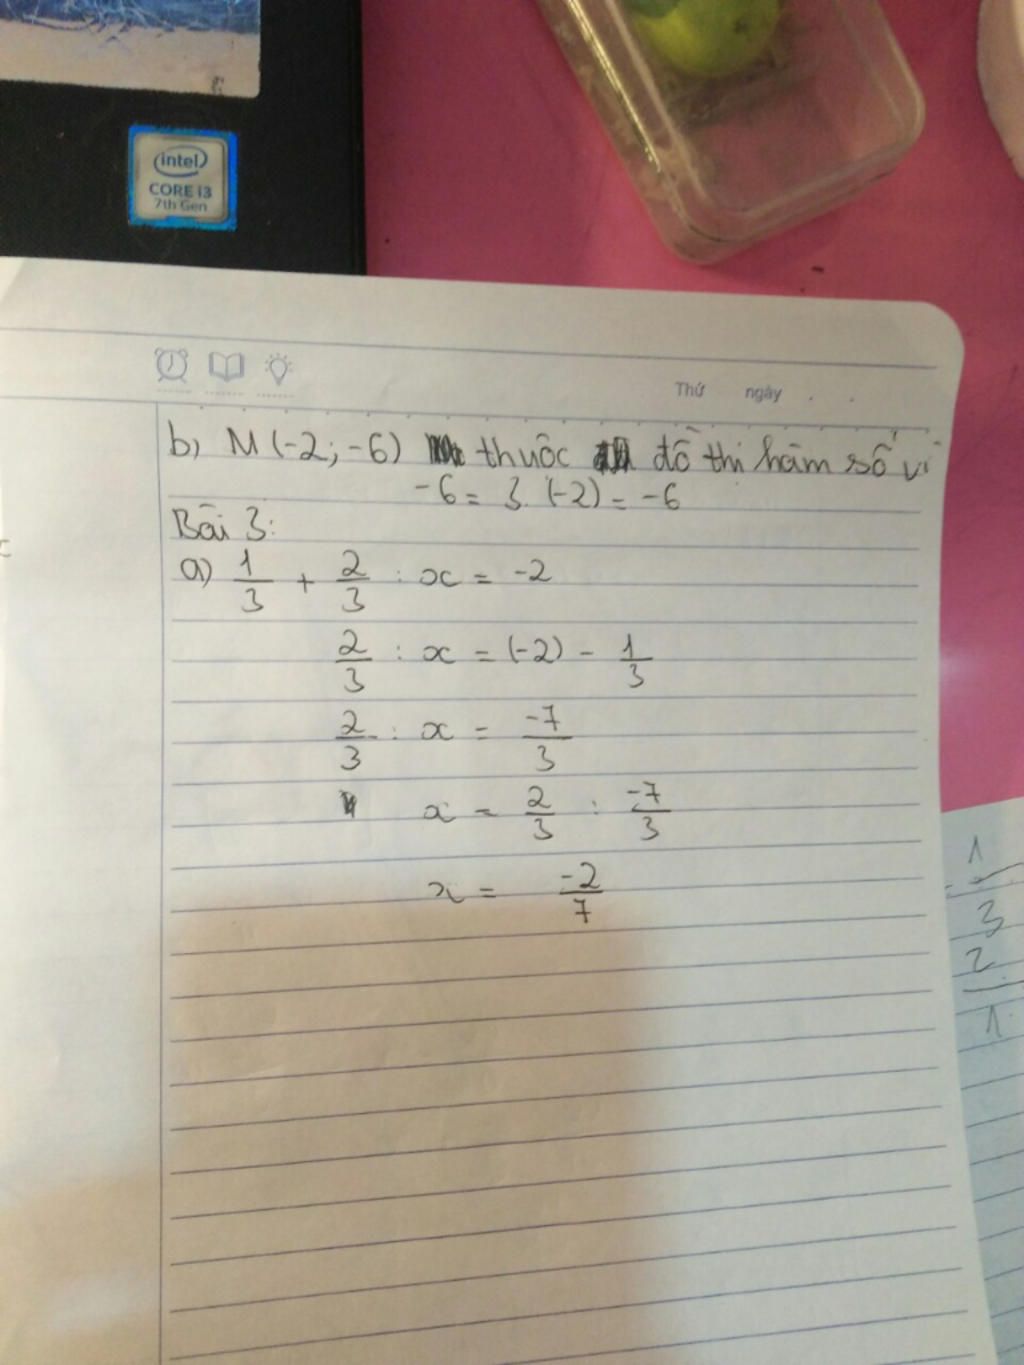 intel
CORE i3
7th Gen
Thứ ngày
b) M (-2; -6) thuộc đồ thi hàm số vì
-6 = 3. (-2) = -6
Bài 3:
a) 1/3 + 2/3 : x = -2
2/3 : x = (-2) - 1/3
2/3 : x = -7/3
x = 2/3 : -7/3
x = -2/7
1
3
2
1